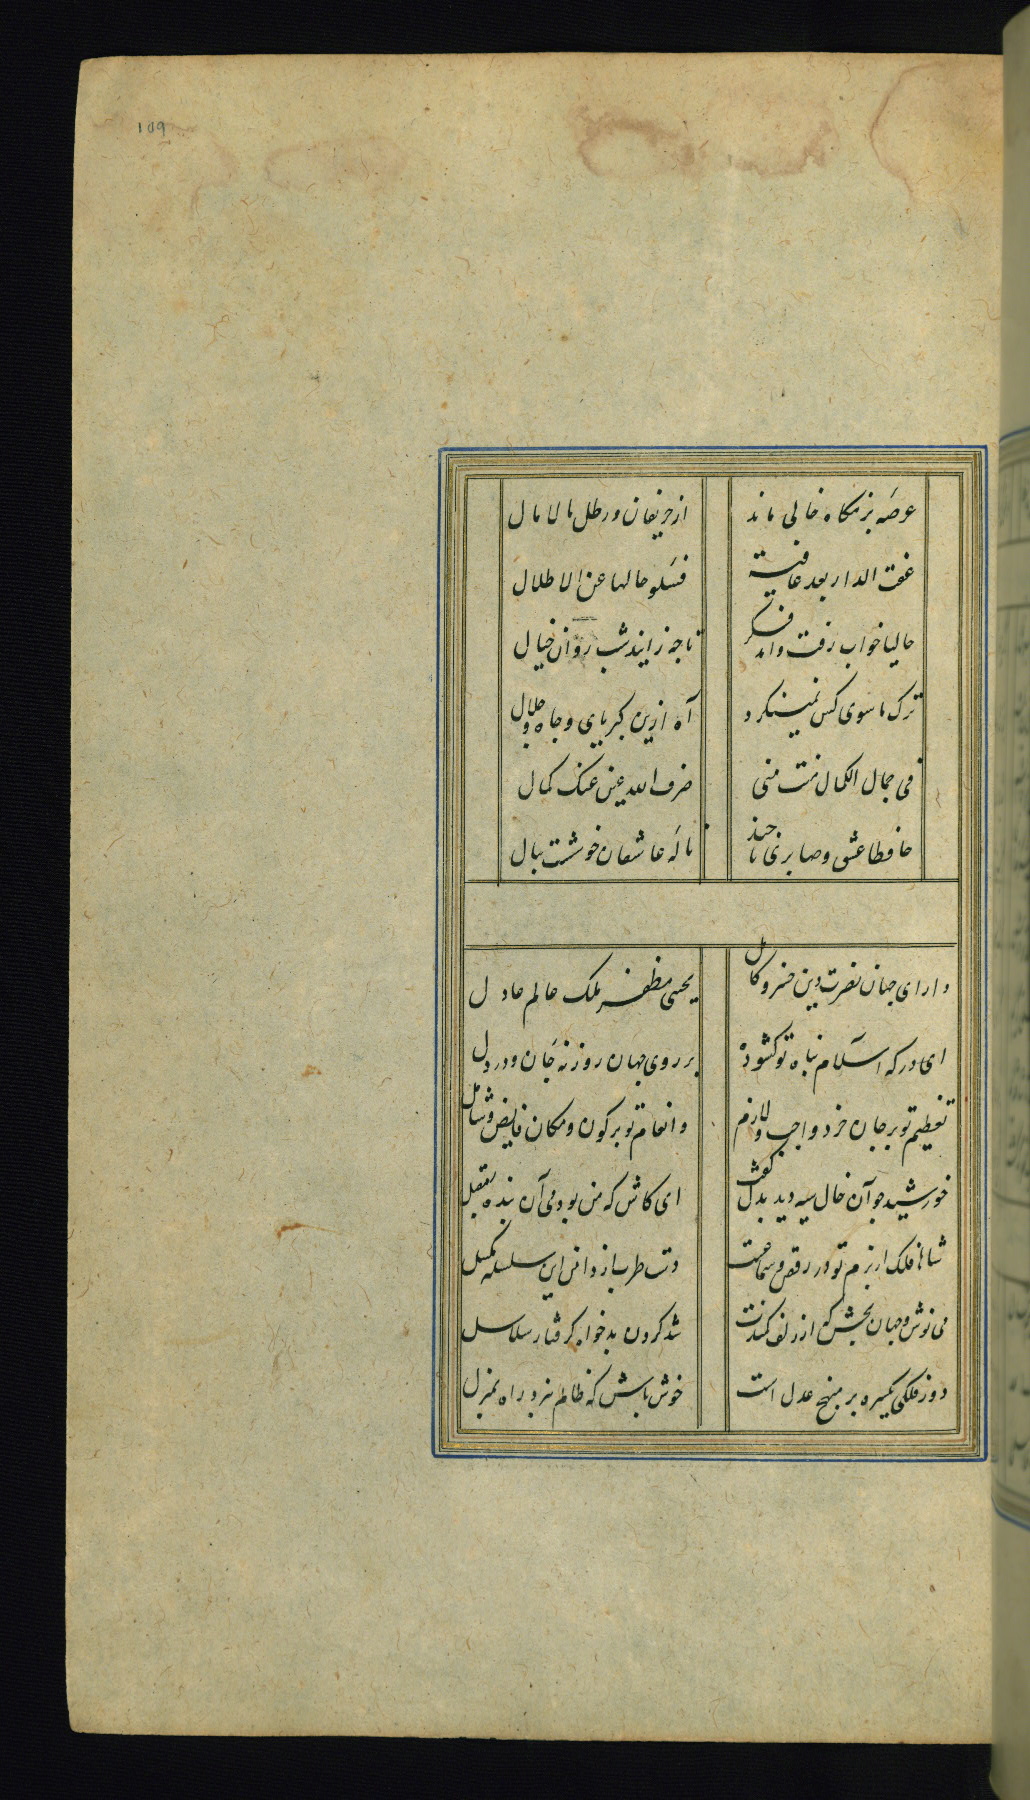 109
عرصه بزمکاه خالی ماند از حریفان و رطل مالامال
عفت الدار بعد عافیة فسئلو حالها عن الاطلال
حالیا خواب رفت و اند فکر تا چه زایند شب روان خیال
ترک ما سوی کس نمینکرد آه ازین کبریای و جاه و جلال
فی جمال الکمال نلت منی صرف الله عین عنک کمال
حافظا عشق و صابری تا چند ناله عاشقان خوشست بنال
دارای جهان نصرت دین خسرو کامل یحیی مظفر ملک عالم عادل
ای درکه اسلام پناه تو کشوده بر روی جهان روزنه جان و در دل
تعظیم تو بر جان خرد واجب و لازم و انعام تو بر کون و مکان فایض و شامل
خورشید چو آن خال سیه دید بدل گفت ای کاش که من بودمی آن بنده مقبل
شاها فلک از بزم تو در رقص و سماعست دست طرب از دامن این سلسله مکسل
می نوش و جهان بخش که از زلف کمندت شد کردن بدخواه کرفتار سلاسل
دور فلکی یکسره بر منهج عدل است خوش باش که ظالم نبرد راه بمنزل